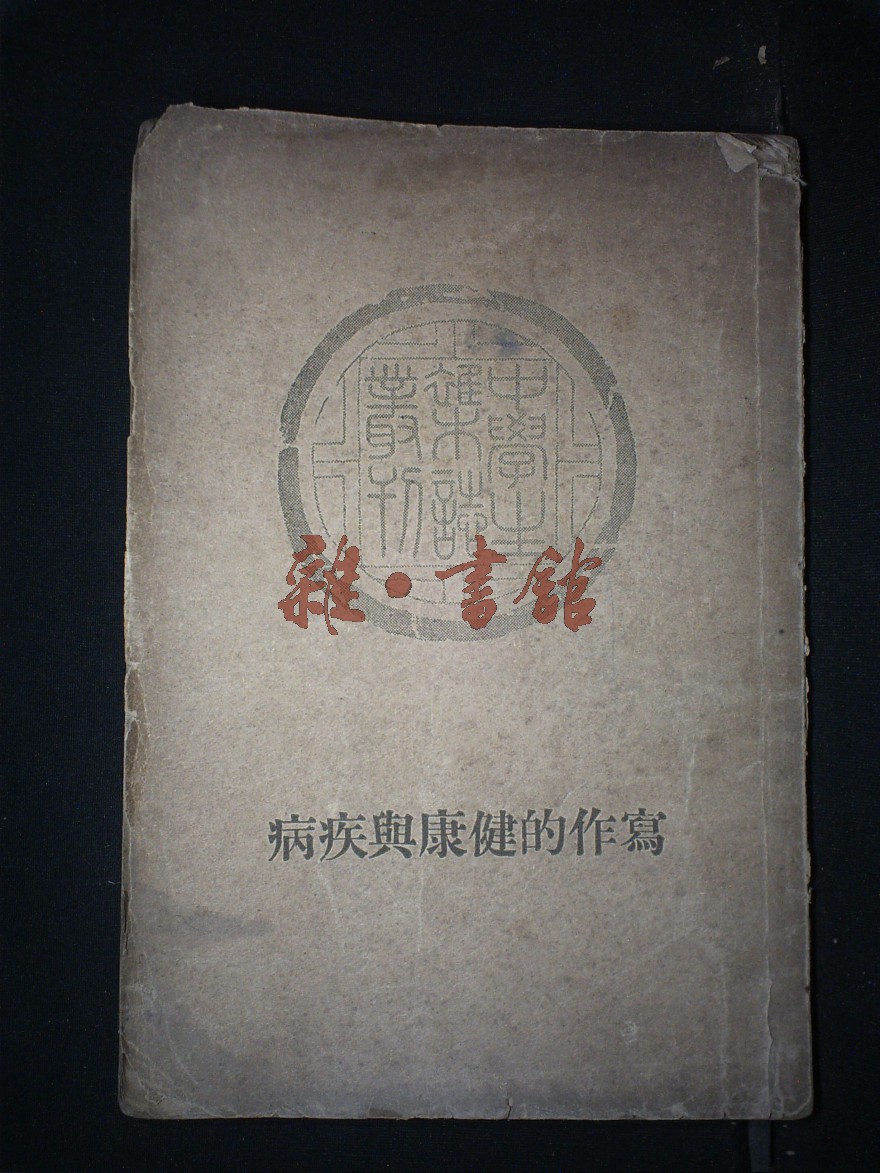 中學生
雜誌
叢刊
雜·書館
寫作的健康與疾病